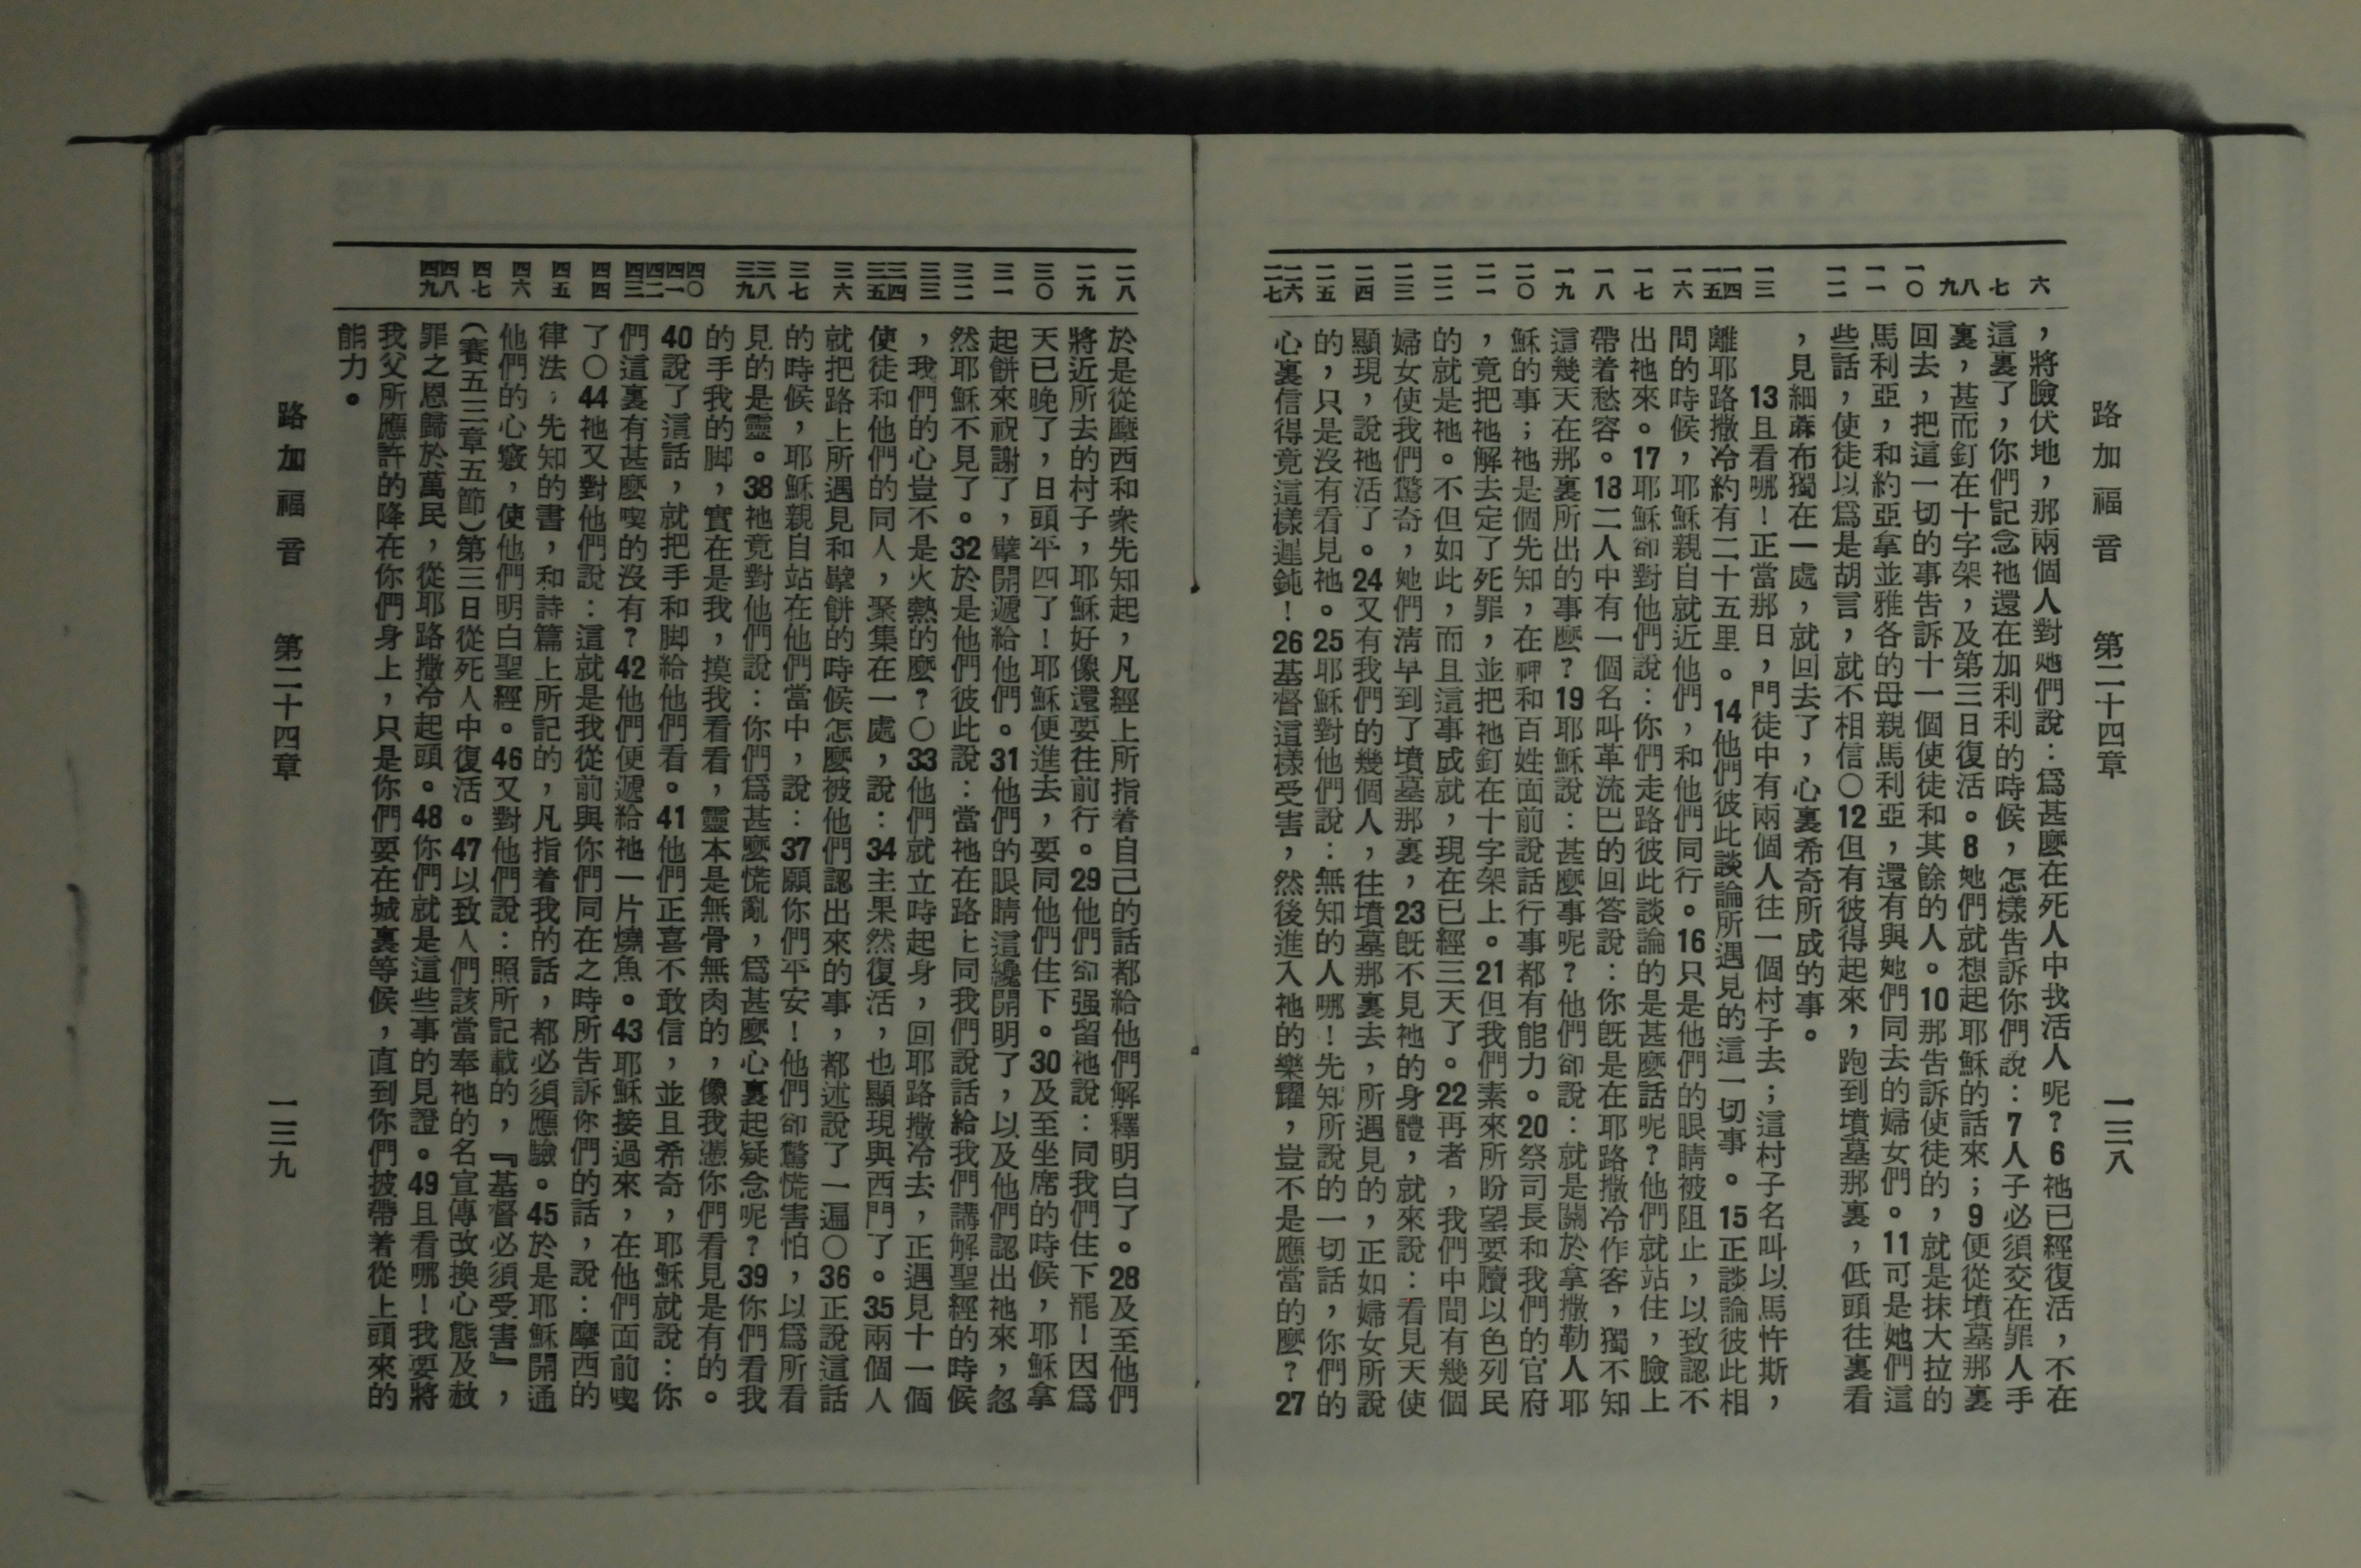 路加福音　第二十四章　一三八
六 七 八 九 一〇 一一 一二 一三 一四 一五 一六 一七 一八 一九 二〇 二一 二二 二三 二四 二五 二六 二七
，將臉伏地，那兩個人對她們說：爲甚麼在死人中找活人呢？6祂已經復活，不在
這裏了，你們記念祂還在加利利的時候，怎樣告訴你們說：7人子必須交在罪人手
裏，甚而釘在十字架，及第三日復活。8她們就想起耶穌的話來；9便從墳墓那裏
回去，把這一切的事告訴十一個使徒和其餘的人。10那告訴使徒的，就是抹大拉的
馬利亞，和約亞拿並雅各的母親馬利亞，還有與她們同去的婦女們。11可是她們這
些話，使徒以爲是胡言，就不相信〇12但有彼得起來，跑到墳墓那裏，低頭往裏看
，見細蔴布獨在一處，就回去了，心裏希奇所成的事。
13且看哪！正當那日，門徒中有兩個人往一個村子去；這村子名叫以馬忤斯，
離耶路撒冷約有二十五里。14他們彼此談論所遇見的這一切事。15正談論彼此相
問的時候，耶穌親自就近他們，和他們同行。16只是他們的眼睛被阻止，以致認不
出祂來。17耶穌卻對他們說：你們走路彼此談論的是甚麼話呢？他們就站住，臉上
帶着愁容。18二人中有一個名叫革流巴的回答說：你旣是在耶路撒冷作客，獨不知
這幾天在那裏所出的事麼？19耶穌說：甚麼事呢？他們卻說：就是關於拿撒勒人耶
穌的事；祂是個先知，在神和百姓面前說話行事都有能力。20祭司長和我們的官府
，竟把祂解去定了死罪，並把祂釘在十字架上。21但我們素來所盼望要贖以色列民
的就是祂。不但如此，而且這事成就，現在已經三天了。22再者，我們中間有幾個
婦女使我們驚奇，她們淸早到了墳墓那裏，23旣不見祂的身體，就來說：看見天使
顯現，說祂活了。24又有我們的幾個人，往墳墓那裏去，所遇見的，正如婦女所說
的，只是沒有看見祂。25耶穌對他們說：無知的人哪！先知所說的一切話，你們的
心裏信得竟這樣遲鈍！26基督這樣受害，然後進入祂的樂耀，豈不是應當的麼？27
二八 二九 三〇 三一 三二 三三 三四 三五 三六 三七 三八 三九 四〇 四一 四二 四三 四四 四五 四六 四七 四八 四九
於是從摩西和衆先知起，凡經上所指着自己的話都給他們解釋明白了。28及至他們
將近所去的村子，耶穌好像還要往前行。29他們卻强留祂說：同我們住下罷！因爲
天已晚了，日頭平四了！耶穌便進去，要同他們住下。30及至坐席的時候，耶穌拿
起餅來祝謝了，擘開遞給他們。31他們的眼睛這纔開明了，以及他們認出祂來，忽
然耶穌不見了。32於是他們彼此說：當祂在路上同我們說話給我們講解聖經的時候
，我們的心豈不是火熱的麼？〇33他們就立時起身，回耶路撒冷去，正遇見十一個
使徒和他們的同人，聚集在一處，說：34主果然復活，也顯現與西門了。35兩個人
就把路上所遇見和擘餅的時候怎麼被他們認出來的事，都述說了一遍〇36正說這話
的時候，耶穌親自站在他們當中，說：37願你們平安！他們卻驚慌害怕，以爲所看
見的是靈。38祂竟對他們說：你們爲甚麼慌亂，爲甚麼心裏起疑念呢？39你們看我
的手我的脚，實在是我，摸我看看，靈本是無骨無肉的，像我憑你們看見是有的。
40說了這話，就把手和脚給他們看。41他們正喜不敢信，並且希奇，耶穌就說：你
們這裏有甚麼喫的沒有？42他們便遞給祂一片燒魚。43耶穌接過來，在他們面前喫
了〇44祂又對他們說：這就是我從前與你們同在之時所告訴你們的話，說：摩西的
律法，先知的書，和詩篇上所記的，凡指着我的話，都必須應驗。45於是耶穌開通
他們的心竅，使他們明白聖經。46又對他們說：照所記載的，『基督必須受害』，
（賽五三章五節）第三日從死人中復活。47以致人們該當奉祂的名宣傳改換心態及赦
罪之恩歸於萬民，從耶路撒冷起頭。48你們就是這些事的見證。49且看哪！我要將
我父所應許的降在你們身上，只是你們要在城裏等候，直到你們披帶着從上頭來的
能力。
路加福音　第二十四章　一三九